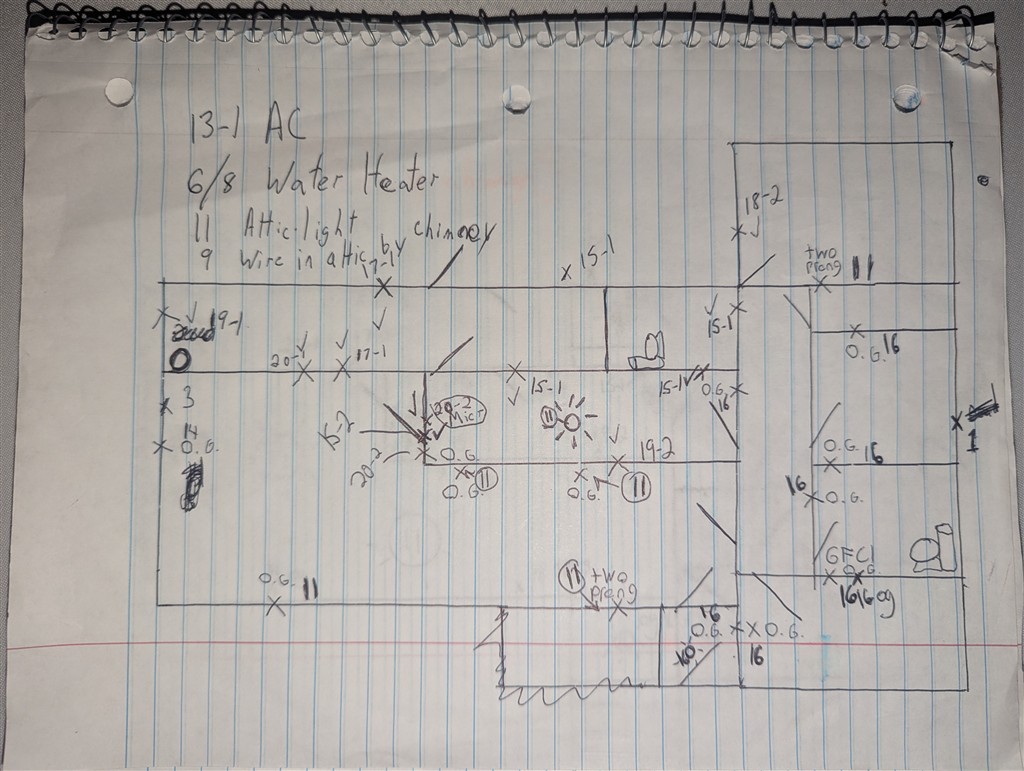 13-1 AC
6/8 Water Heater
11 Attic light
9 wire in attic by chimney
17-1
15-1
18-2
two
prang
11
19-1
15-1
O.G. 16
20-1
17-1
15-1
15-1
O.G.
16
3
14
O.G.
20-2
Micr
15-2
20-2
O.G.
11
O.G.
11
19-2
O.G.
11
O.G.
16
16
O.G.
1
GFCI
O.G.
16 16 og
O.G. 11
11
two
prang
16
O.G.
O.G.
16